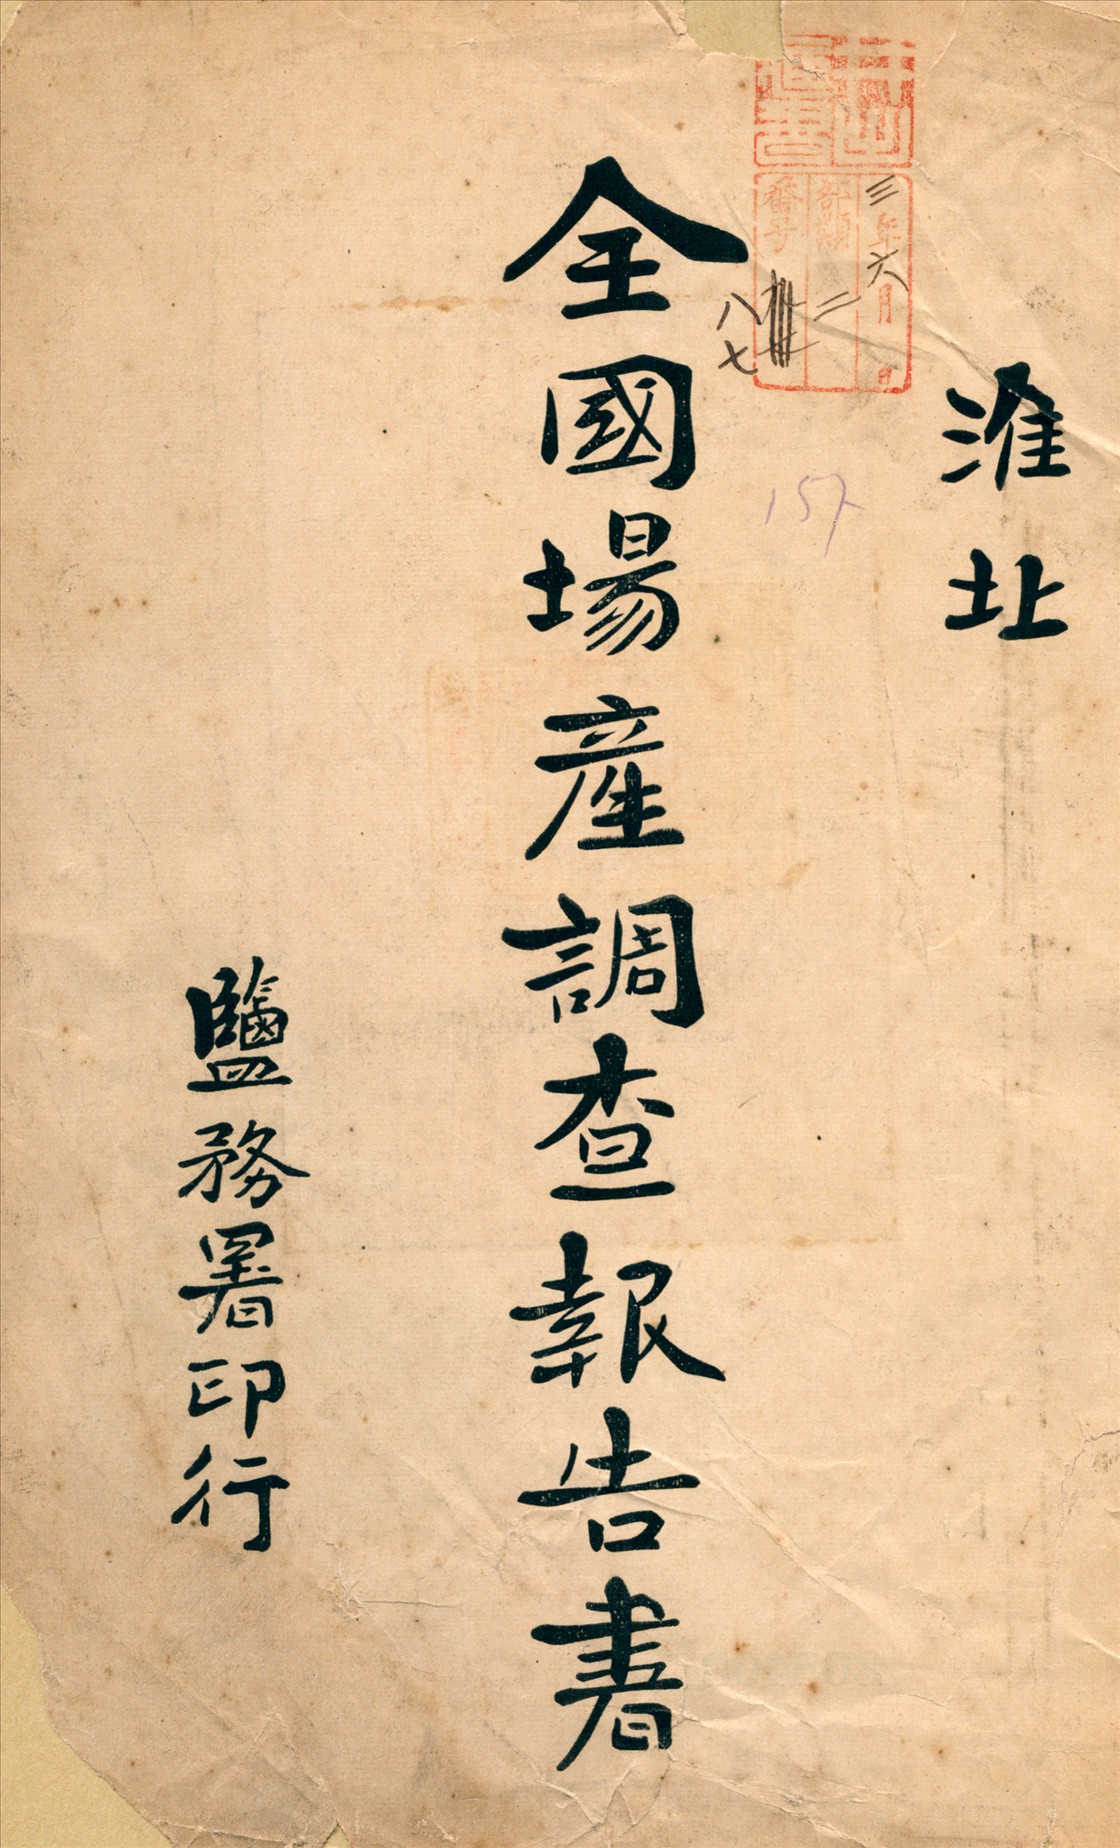 淮北
三年六月 日
部類 二
番号 八七
157
全國場産調查報告書
鹽務署印行